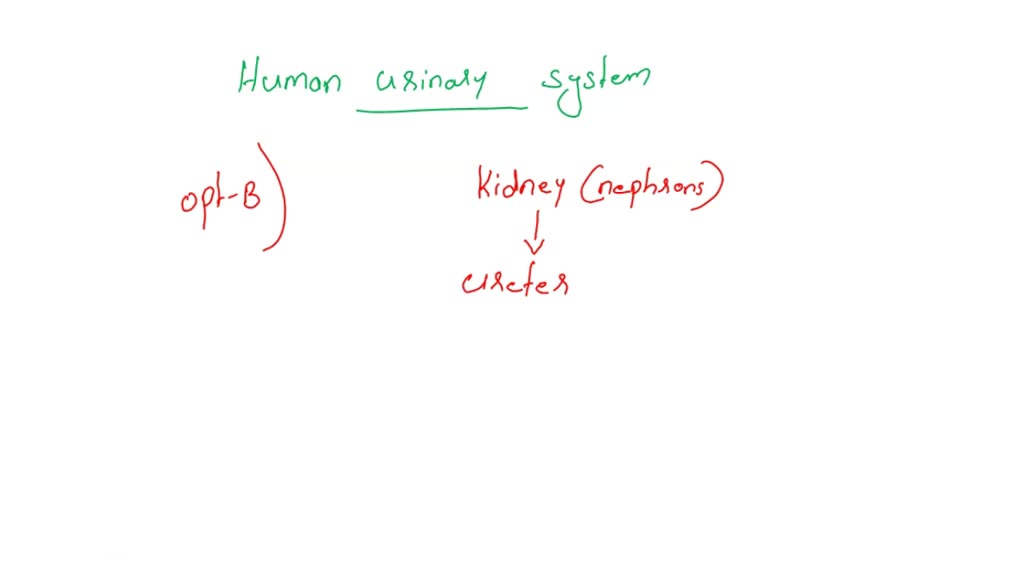 Human urinary system
opt-B)
Kidney (nephrons)
↓
ureter